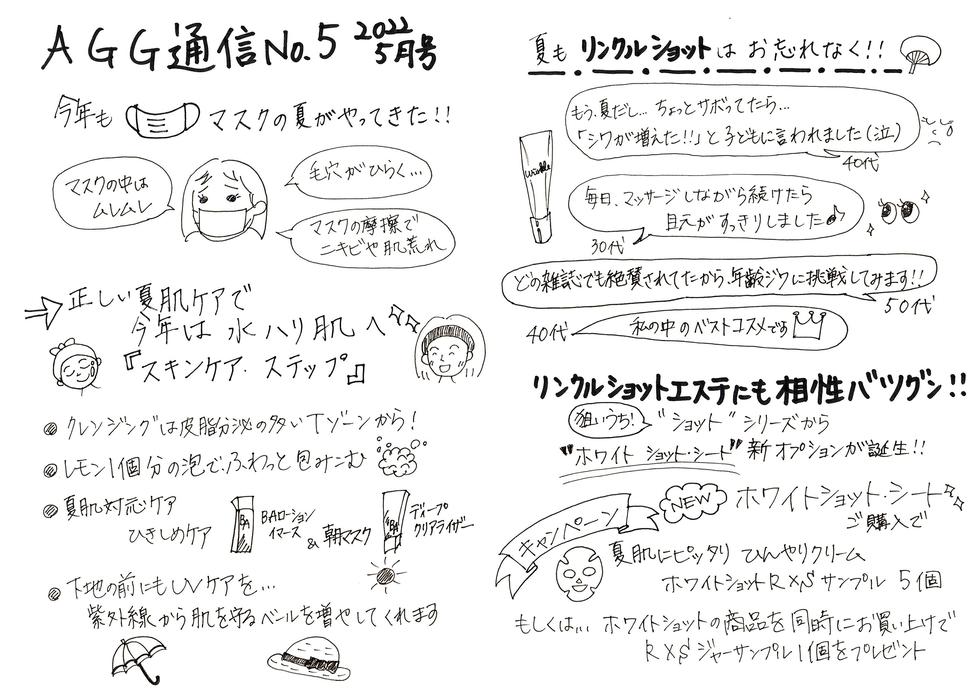 AGG通信No.5 2022 5月号
今年も マスクの夏がやってきた!!
マスクの中は
ムレムレ
毛穴がひらく…
マスクの摩擦で
ニキビや肌荒れ
正しい夏肌ケアで
今年は水ハリ肌へ
『スキンケア・ステップ』
クレンジングは皮脂分泌の多いTゾーンから!
レモン1個分の泡で、ふわっと包みこむ
夏肌対応ケア
ひきしめケア
BA
BAローション
イマース
& 朝マスク
BA
ディープ
クリアライザー
下地の前にもUVケアを…
紫外線から肌を守るベールを増やしてくれます
夏も リンクルショットは お忘れなく!!
wrinkle
もう、夏だし… ちょっとサボってたら…
「シワが増えた!!」と子どもに言われました(泣)
40代
毎日、マッサージしながら続けたら
目元がすっきりしました♪
30代
どの雑誌でも絶賛されてたから、年齢ジワに挑戦してみます!!
50代
40代
私の中のベストコスメです
リンクルショットエステにも相性バツグン!!
狙いうち!
"ショット"シリーズから
"ホワイト ショット・シート" 新オプションが誕生!!
キャンペーン
NEW
ホワイトショット・シート
ご購入で
夏肌にピッタリ ひんやりクリーム
ホワイトショットRXSサンプル 5個
もしくは… ホワイトショットの商品を同時にお買い上げで
RXSジャーサンプル1個をプレゼント